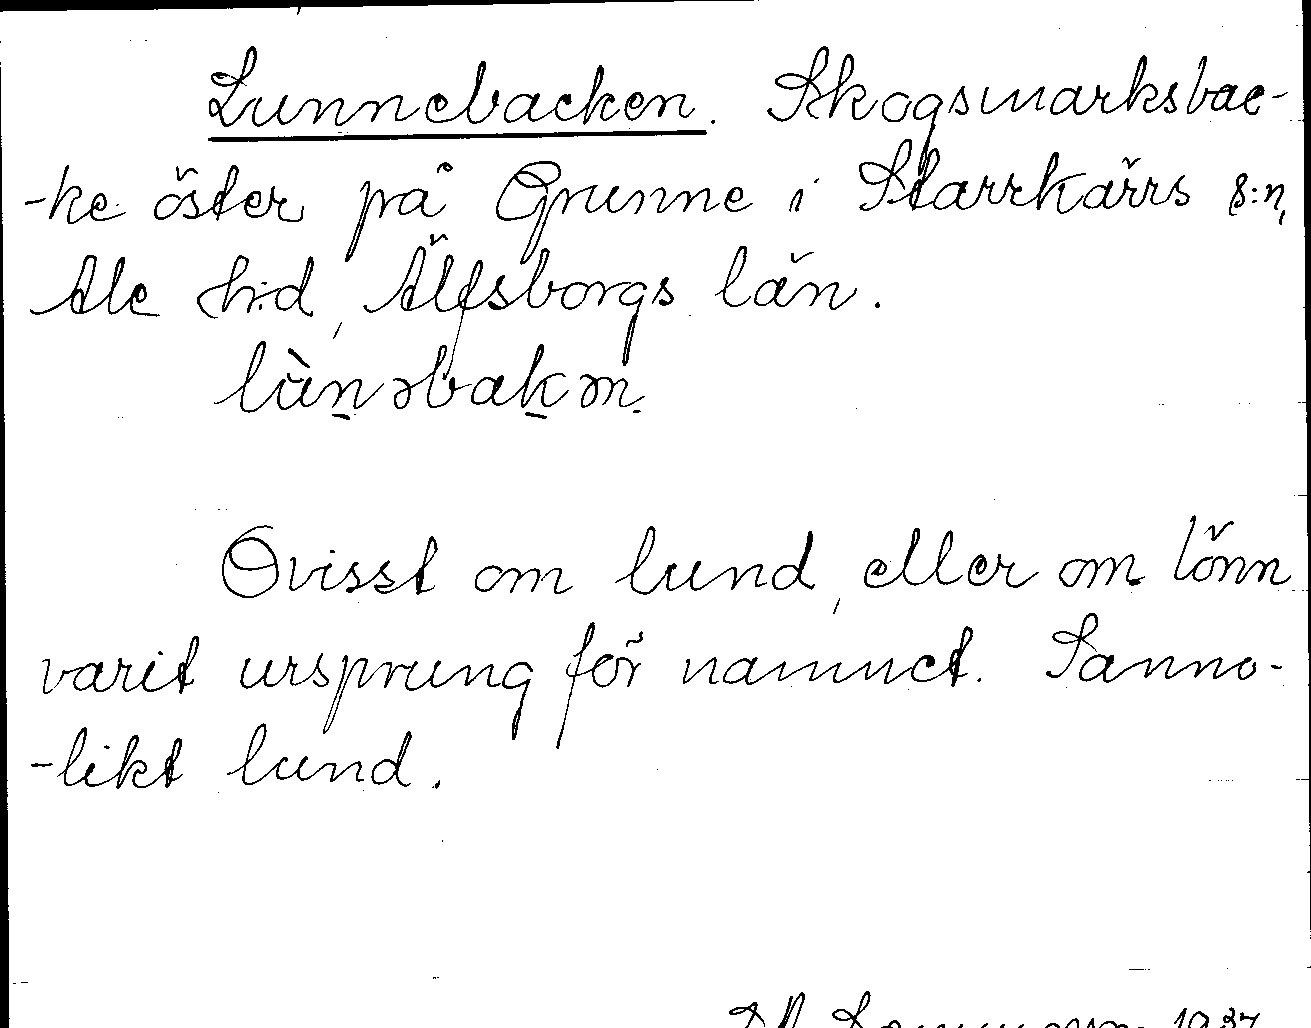 Lunnebacken. Skogsmarksbac-
-ke öster på Grunne i Starrkärrs s:n,
Ale h:d, Älfsborgs län.
lùnəbakən.
Ovisst om lund, eller om lönn
varit ursprung för namnet. Sanno-
-likt lund.
1937